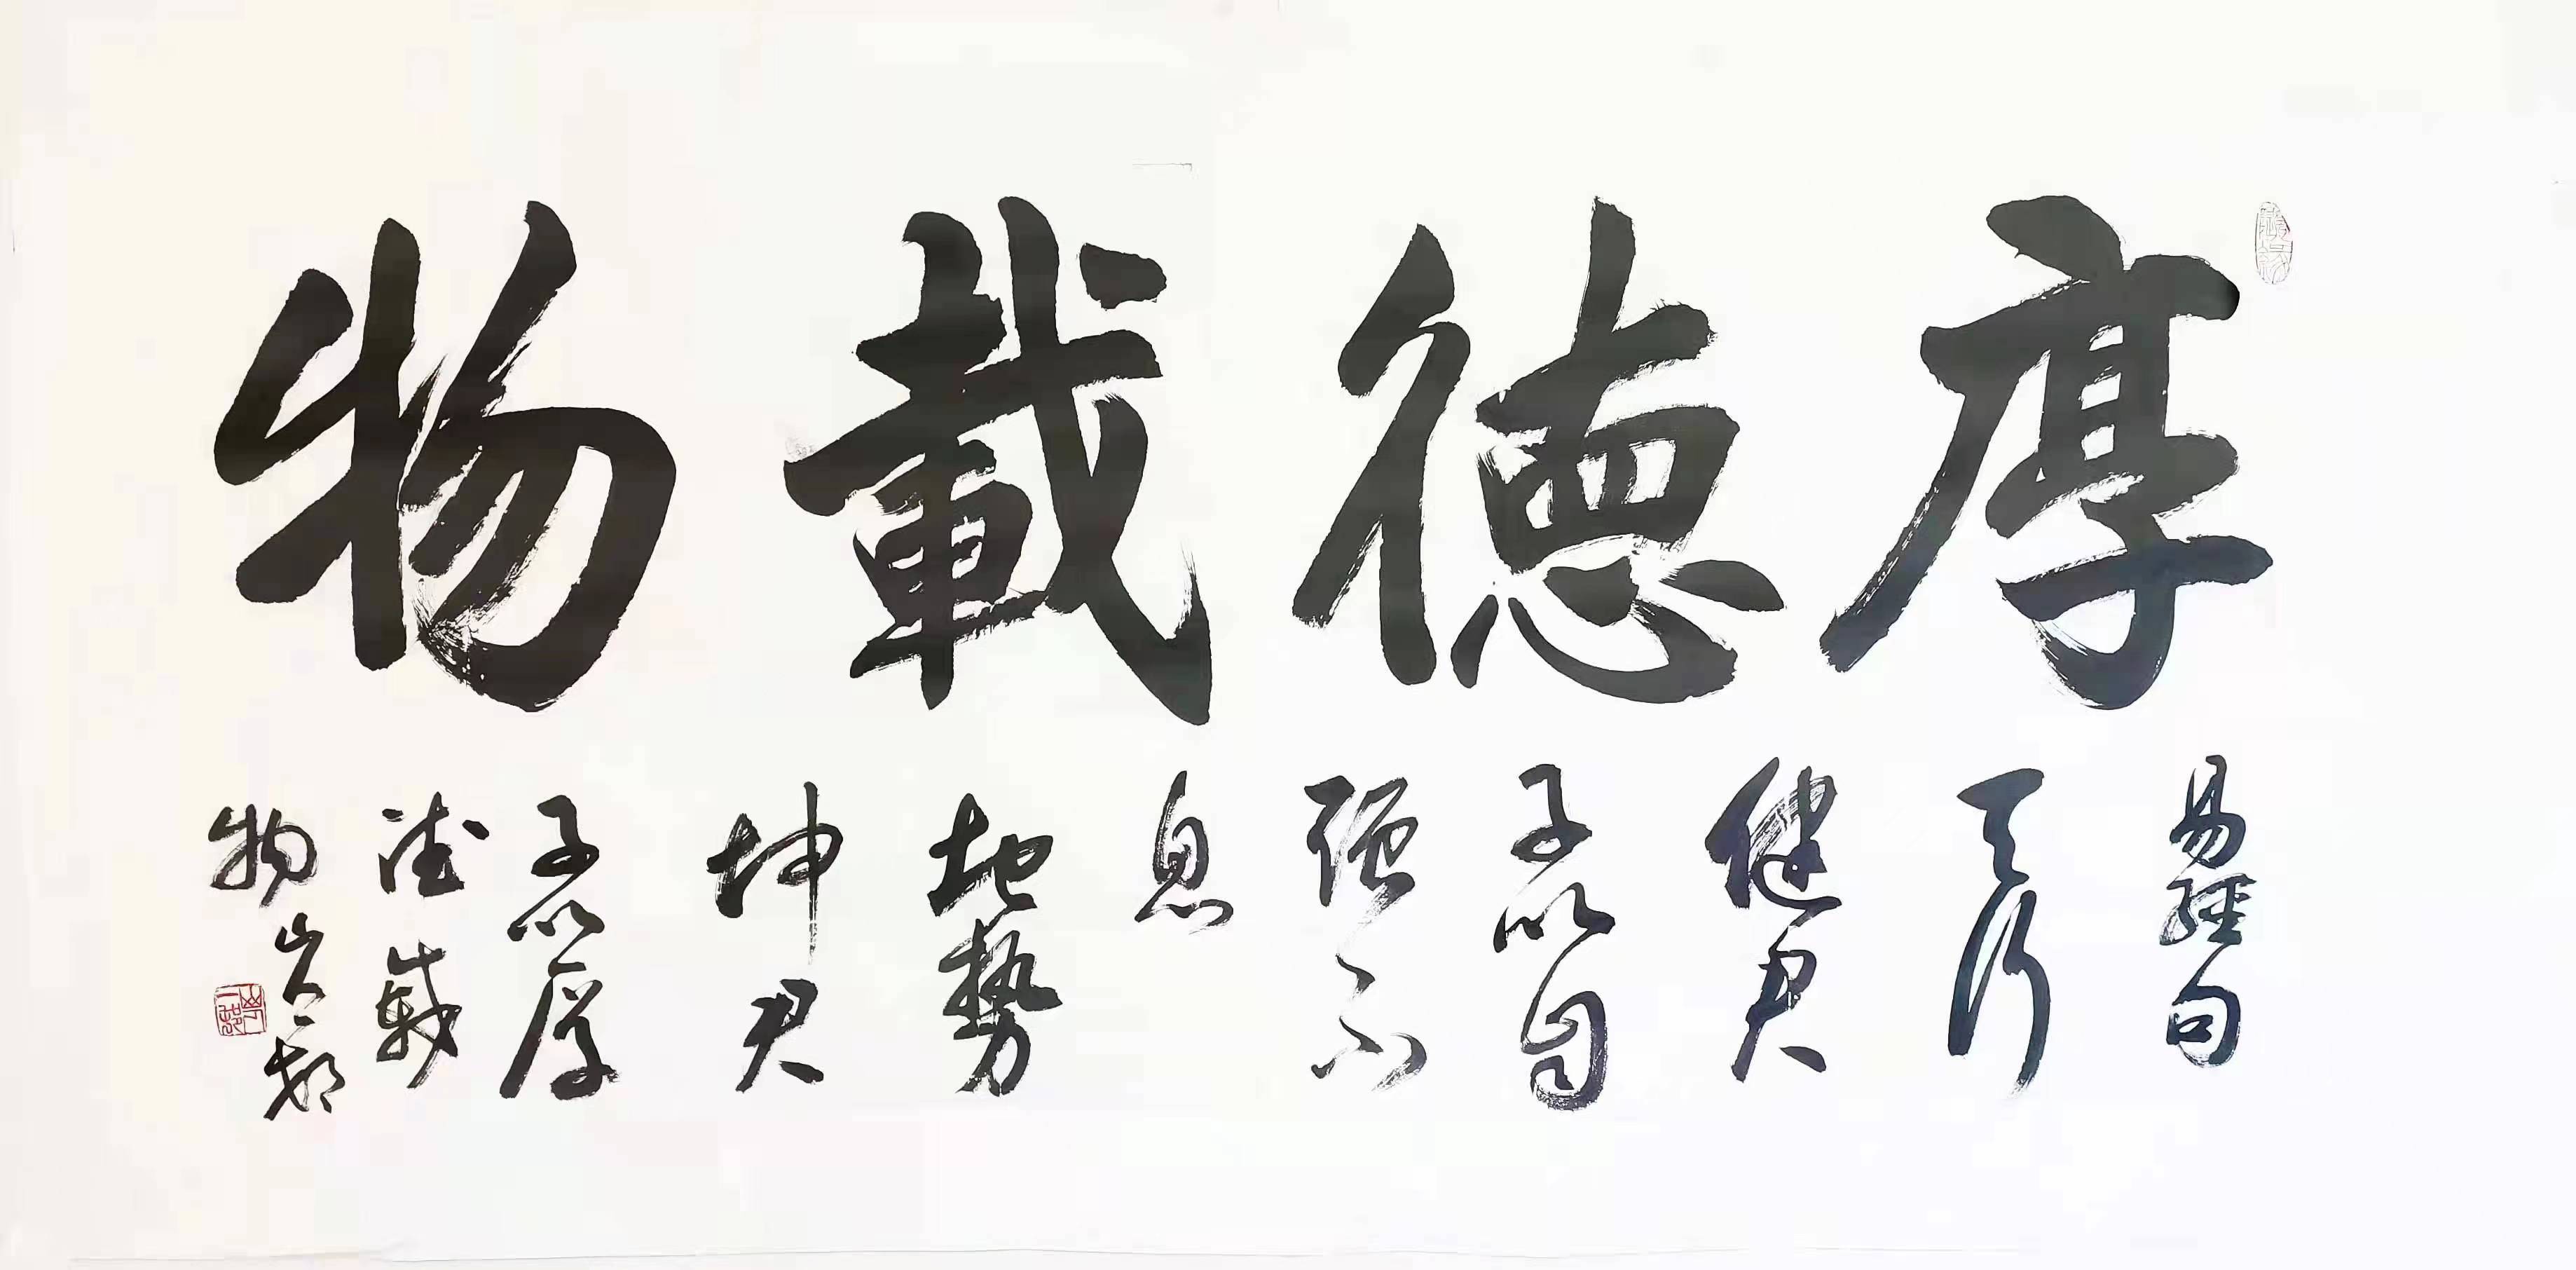 厚德載物
易經句
天行
健君
子以自
强不
息
地勢
坤君
子以厚
德載
物